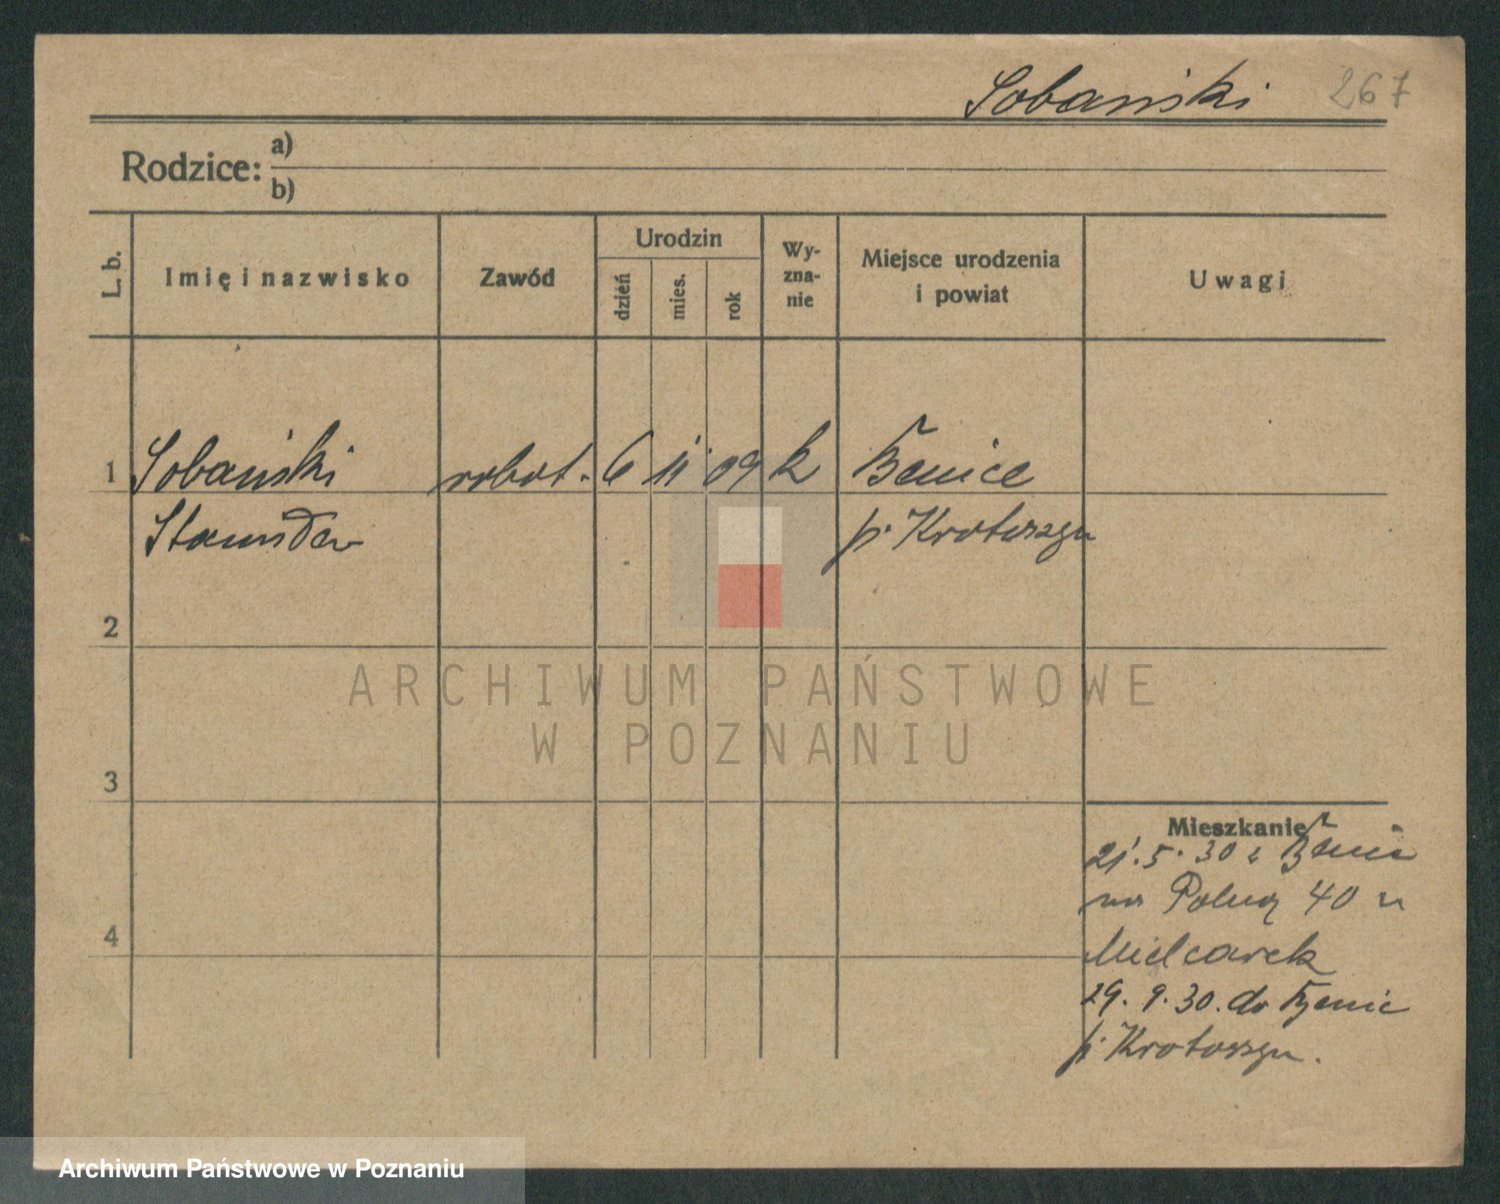 Sobański 267
Rodzice: a)
b)
L. b.
Imię i nazwisko
Zawód
Urodzin
dzień
mies.
rok
Wy-
zna-
nie
Miejsce urodzenia
i powiat
Uwagi
1 Sobański robot. 6 11 09 k Benice
Stanisław p. Krotoszyn
2
3
4
Mieszkanie
21.5.30 z Benic
na Polną 40 u
Mielcarek
29.9.30. do Benic
p. Krotoszyn.
ARCHIWUM PAŃSTWOWE
W POZNANIU
Archiwum Państwowe w Poznaniu